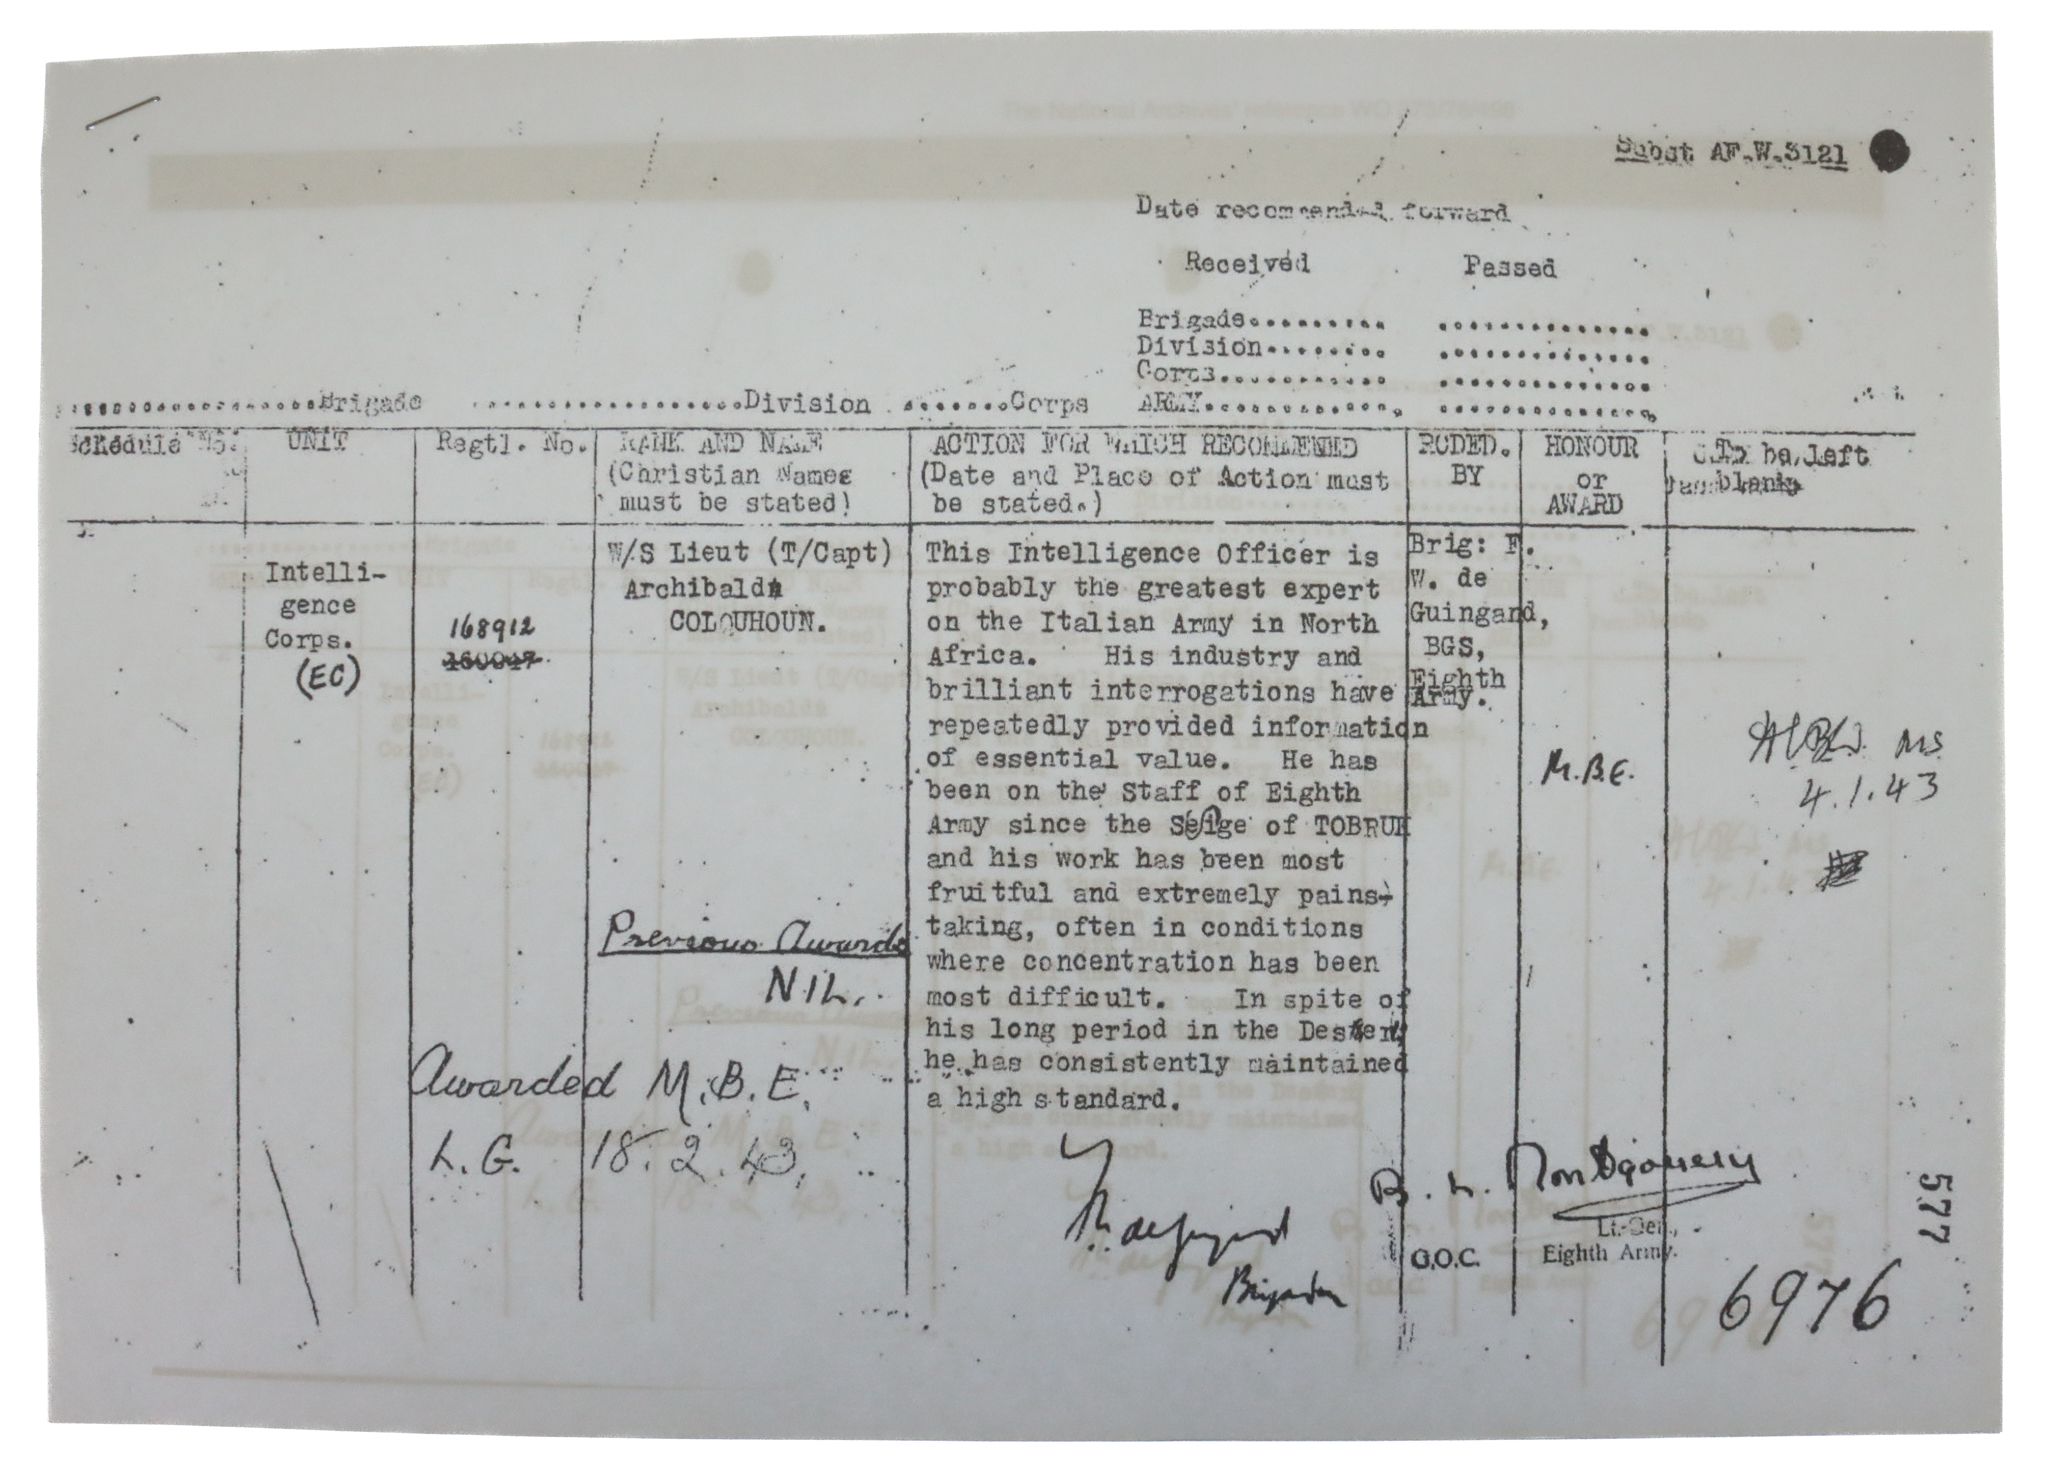 Subst AF.W.3121
Date recommended forward
Received Passed
Brigade.......... ..............
Division........ ..............
Corps........... ..............
ARMY............. ..............
..................Brigade ..................Division .......Corps
Schedule No. UNIT Regtl. No. RANK AND NAME ACTION FOR WHICH RECOMMENDED RCDED. HONOUR To be left
(Christian Names (Date and Place of Action must BY or blank
must be stated) be stated.) AWARD
W/S Lieut (T/Capt)
Archibald
COLQUHOUN.
Intelli-
gence
Corps.
(EC)
168912
160047
This Intelligence Officer is
probably the greatest expert
on the Italian Army in North
Africa. His industry and
brilliant interrogations have
repeatedly provided information
of essential value. He has
been on the Staff of Eighth
Army since the Seige of TOBRUK
and his work has been most
fruitful and extremely pains-
taking, often in conditions
where concentration has been
most difficult. In spite of
his long period in the Desert,
he has consistently maintained
a high standard.
Brig: F.
W. de
Guingand,
BGS,
Eighth
Army.
M.B.E.
MS
4.1.43
Previous Awards
NIL.
Awarded M.B.E.
L.G. 18.2.43.
de Guingand
Brigadier
B. L. Montgomery
Lt.-Gen.,
G.O.C. Eighth Army.
577
6976